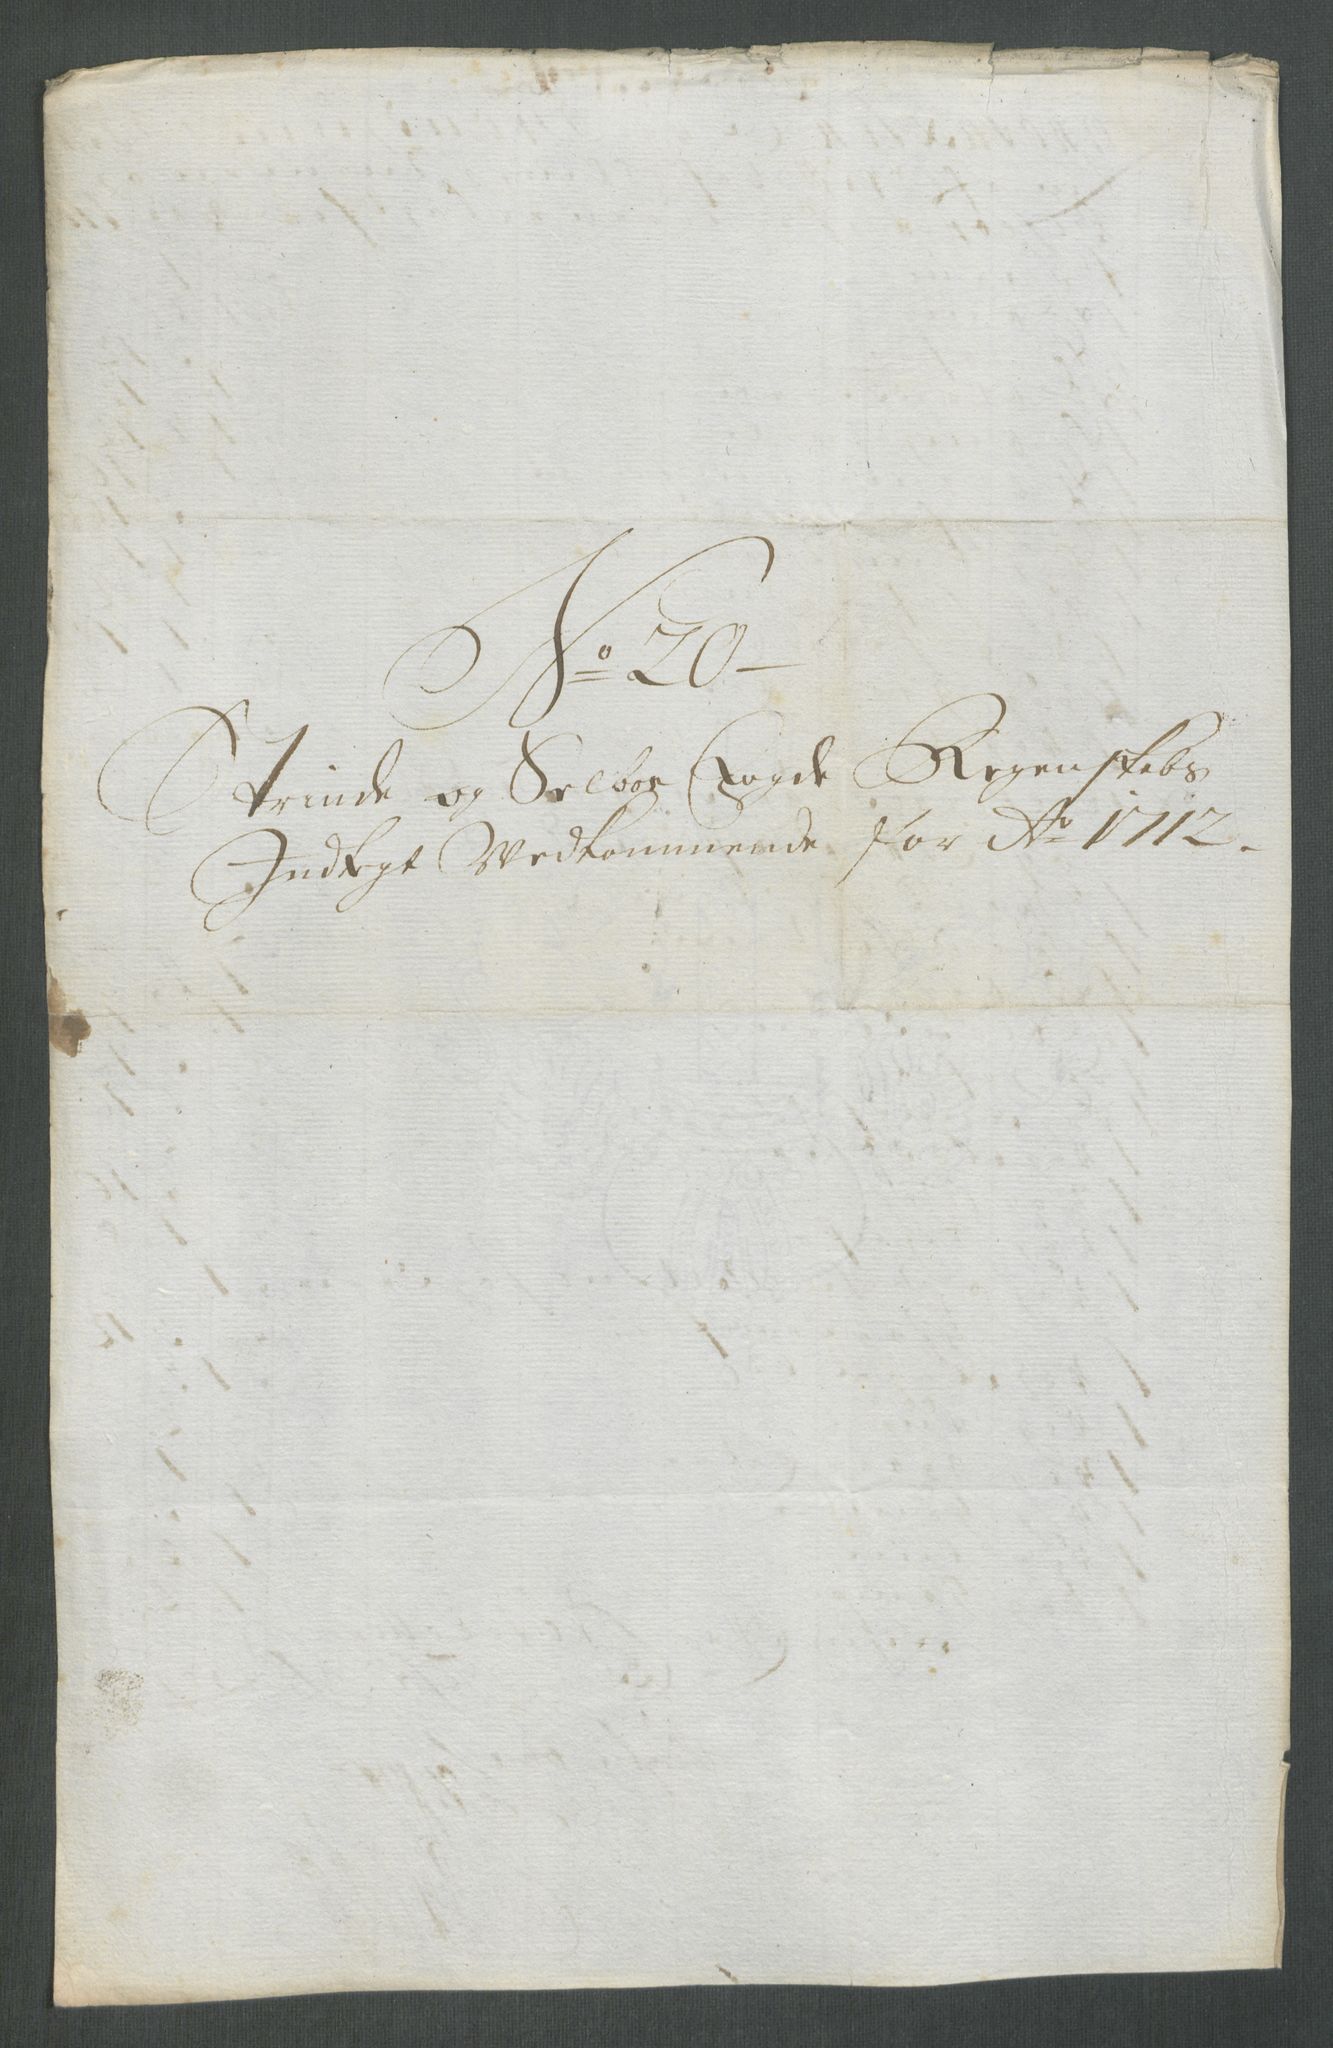 No 20
Strinde og Selboe Fogde Regenskebs
Indtegt Vedkommende for Ao 1712.